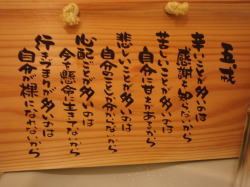 五戒
辛いことが多いのは
感謝を知らないから
苦しいことが多いのは
自分に甘えがあるから
悲しいことが多いのは
自分のことしか考えないから
心配ごとが多いのは
今を懸命に生きてないから
行きづまりが多いのは
自分が裸になれないから